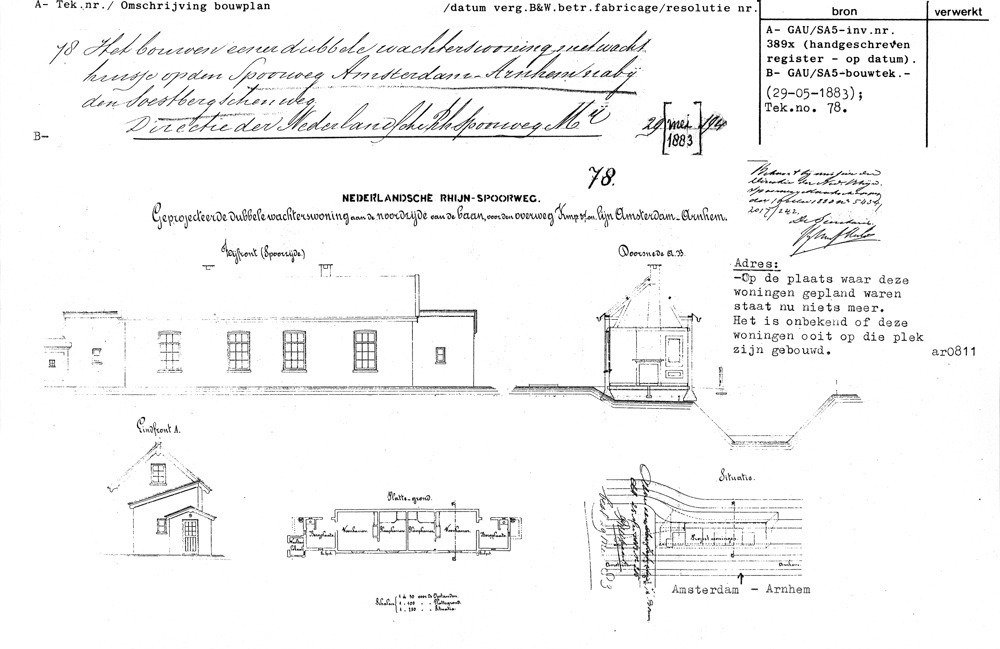 A- Tek.nr./ Omschrijving bouwplan /datum verg.B&W.betr.fabricage/resolutie nr.
bron
verwerkt
A- GAU/SA5-inv.nr.
389x (handgeschreven
register - op datum).
B- GAU/SA5-bouwtek.-
(29-05-1883);
Tek.no. 78.
78 Het bouwen eener dubbele wachterswoning met wacht
huisje op den Spoorweg Amsterdam-Arnhem nabij
den Soestbergschenweg
Directie der Nederlandsche Rhijnspoorweg Mij
29 mei
[1883]
B-
78.
NEDERLANDSCHE RHIJN-SPOORWEG.
Geprojecteerde dubbele wachterswoning aan de noordzijde van de baan, voor den overweg lijn Amsterdam-Arnhem.
Zijfront (Spoorzijde)
Doorsnede A.B.
Adres:
-Op de plaats waar deze
woningen gepland waren
staat nu niets meer.
Het is onbekend of deze
woningen ooit op die plek
zijn gebouwd.
ar0811
Eindfront A.
Platte-grond.
Situatie.
Woonkamer
Woonkamer
Project woningen
Arnhem
Amsterdam - Arnhem
Schalen
1 à 50 voor de Opstanden
1 - 100 „ „ Plattegrond
1 - 250 „ „ Situatie